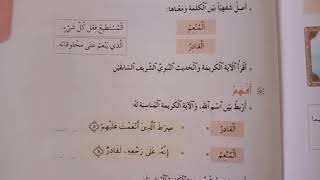 أَصِلُ شَفَهِيًّا بَيْنَ ٱلْكَلِمَةِ وَمَعْنَاهَا:
ٱلْمُنْعِمُ
ٱلْمُسْتَطِيعُ فِعْلَ كُلِّ شَيْءٍ.
ٱلْقَادِرُ
ٱلَّذِي يُنْعِمُ عَلَى مَخْلُوقَاتِهِ.
أَقْرَأُ ٱلْآيَةَ ٱلْكَرِيمَةَ وَٱلْحَدِيثَ ٱلنَّبَوِيَّ ٱلشَّرِيفَ ٱلسَّابِقَيْنِ
أَفْهَمُ
أَرْبِطُ بَيْنَ ٱسْمِ ٱللهِ، وَٱلْآيَةِ ٱلْكَرِيمَةِ ٱلْمُنَاسِبَةِ لَهُ:
ٱلْقَادِرُ
صِرَٰطَ ٱلَّذِينَ أَنْعَمْتَ عَلَيْهِمْ
ٱلْمُنْعِمُ
إِنَّهُۥ عَلَىٰ رَجْعِهِۦ لَقَادِرٌ